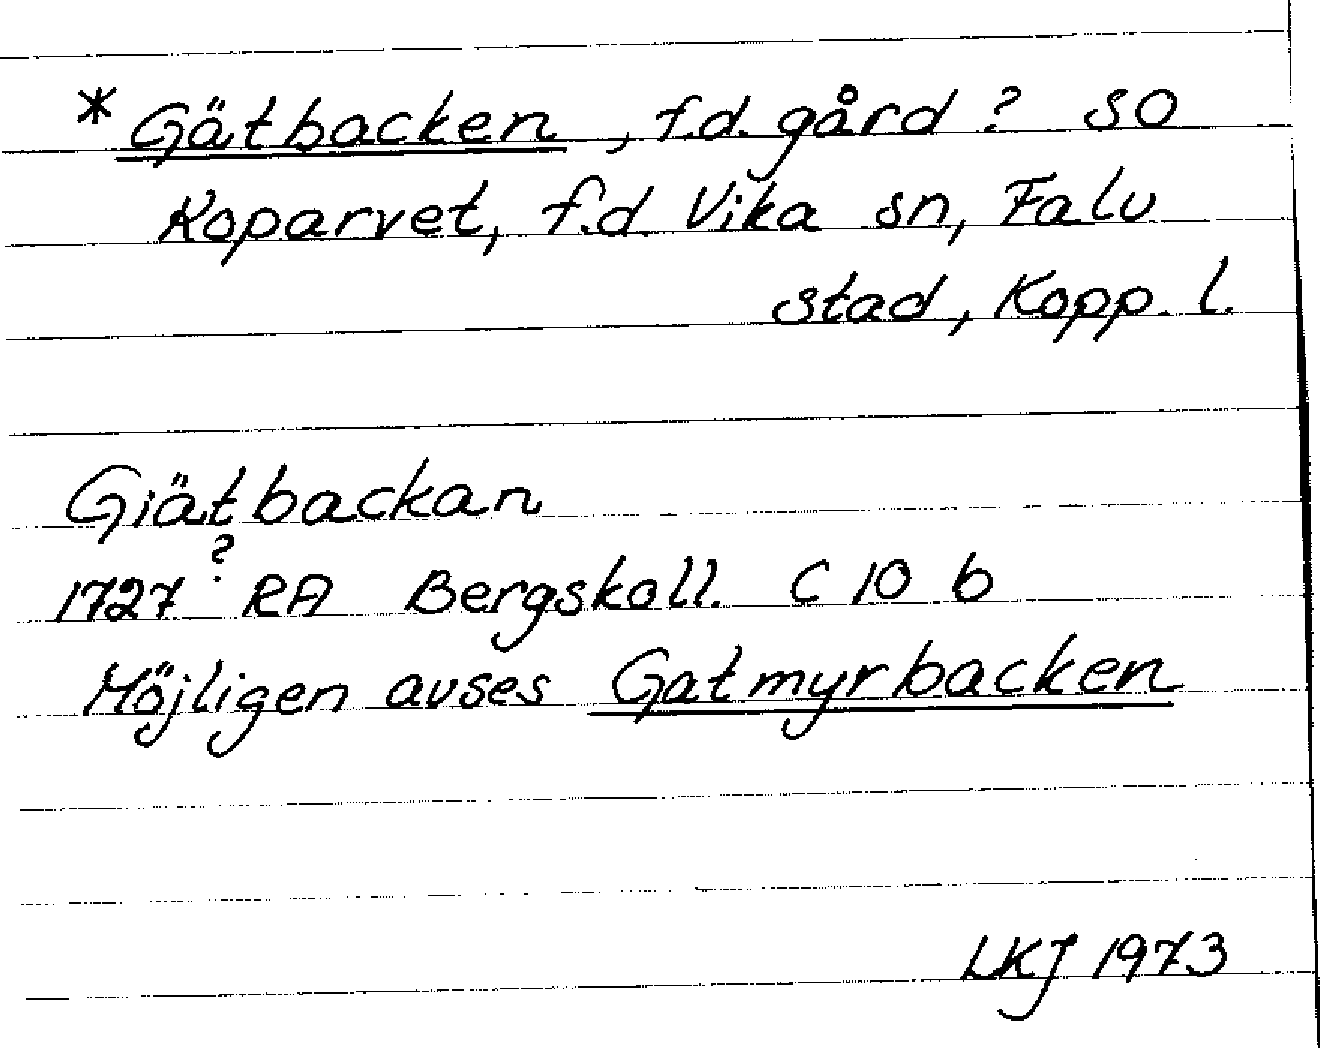 * Gätbacken, f.d. gård? SO
Koparvet, f.d. Vika sn, Falu
stad, Kopp. l.
Giätbackan
?
1727 RA Bergskoll. C 10 b
Möjligen avses Gatmyrbacken
LKJ 1973